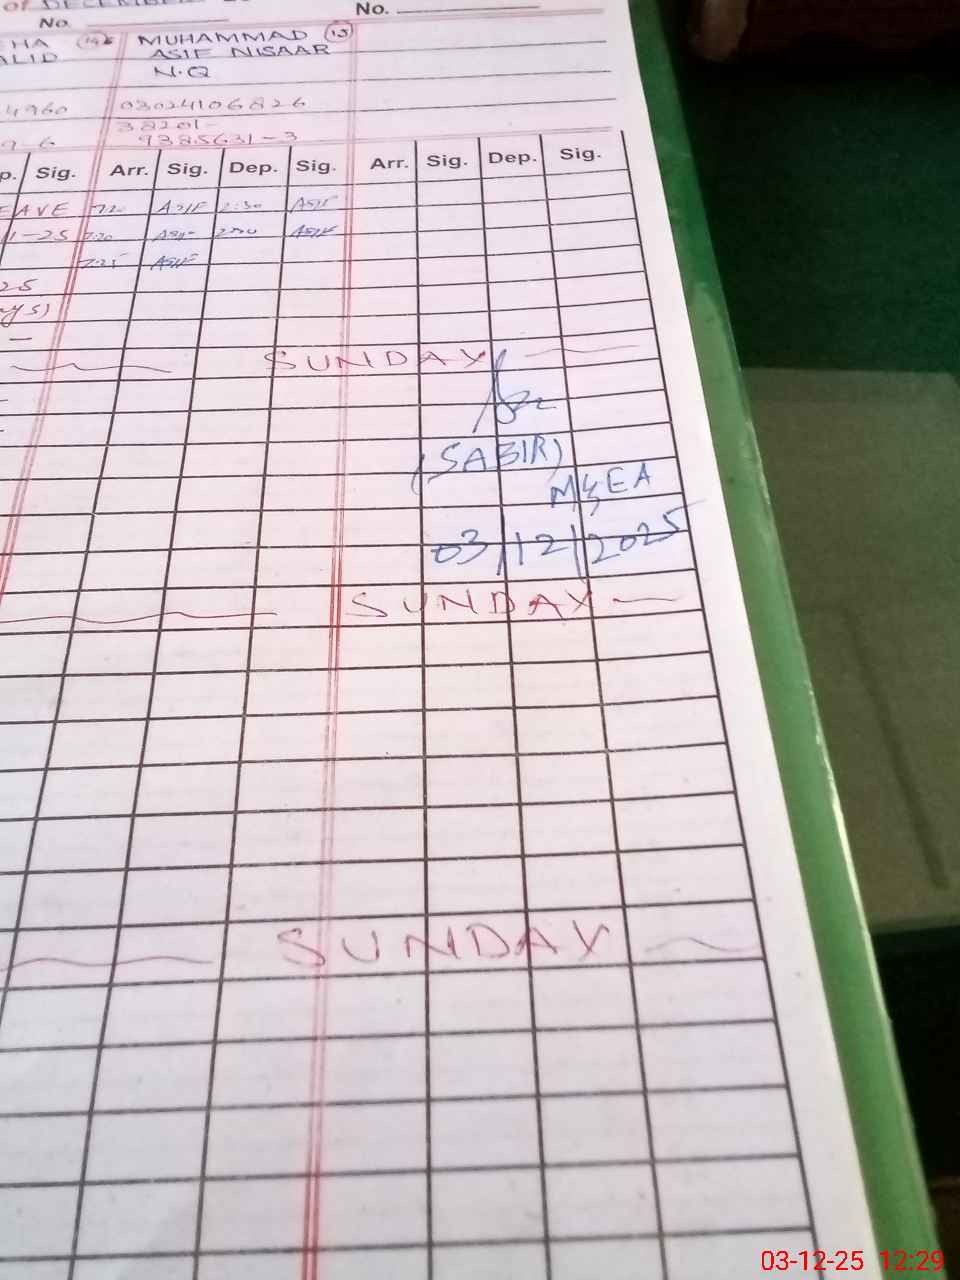 of DECEMBER 2
No.
No.
HA 14
ALID
MUHAMMAD 15
ASIF NISAAR
N.Q
4960
03024106826
9-6
38201-
9385631-3
p. Sig. Arr. Sig. Dep. Sig. Arr. Sig. Dep. Sig.
EAVE 7:20 ASIF 2:30 ASIF
11-25 7:20 ASIF 2:30 ASIF
7:25 ASIF
25
ays)
SUNDAY
(SABIR)
M&EA
03/12/2025
SUNDAY
SUNDAY
03-12-25 12:29